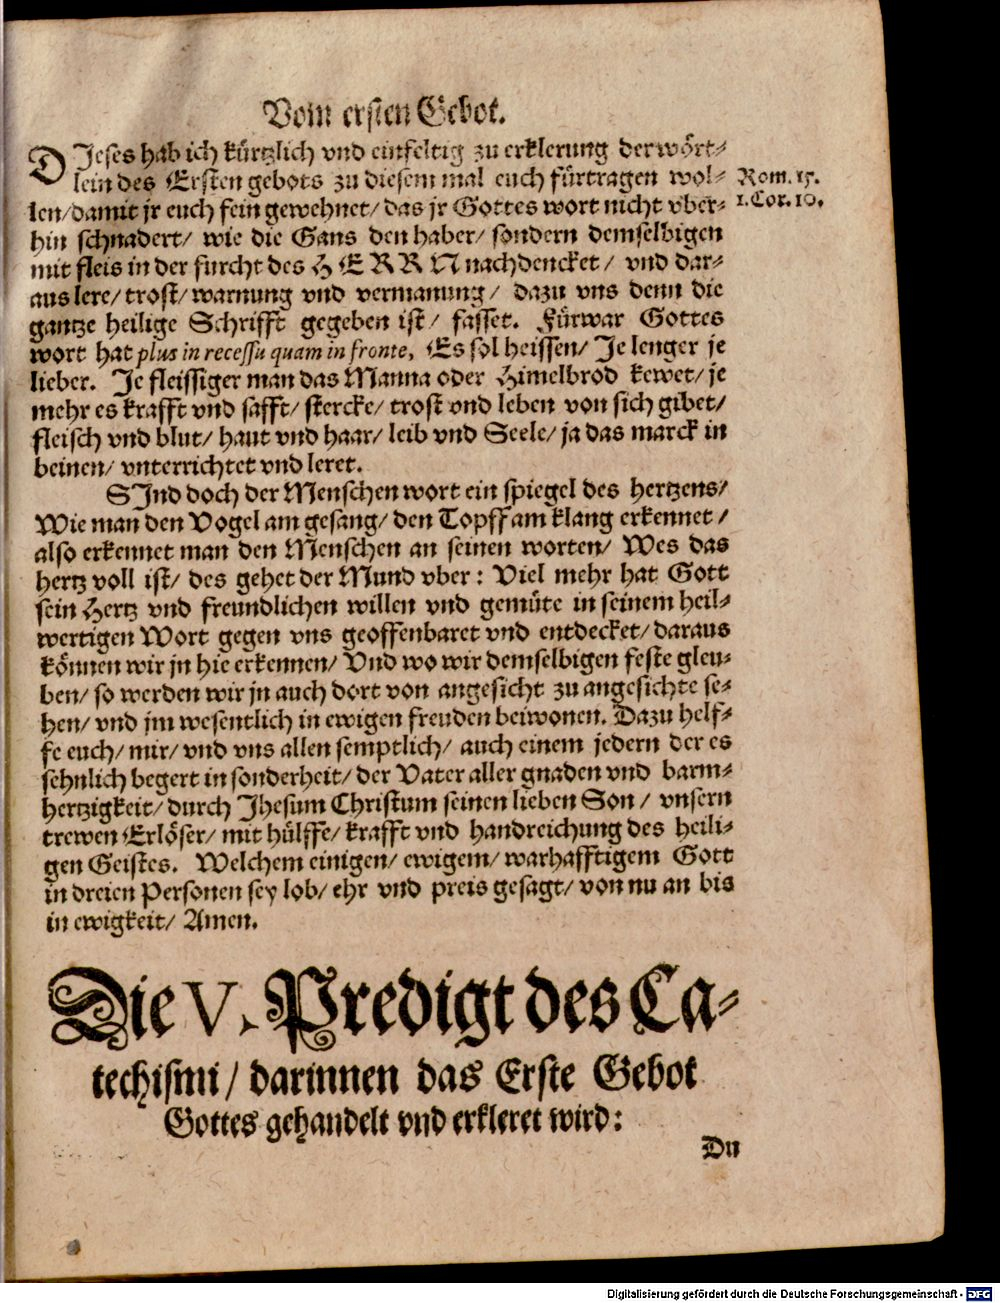 Vom ersten Gebot.
DJeses hab ich kürtzlich vnd einfeltig zu erklerung der wört-
lein des Ersten gebots zu diesem mal euch fürtragen wol-
Rom. 15.
len/ damit jr euch fein gewehnet/ das jr Gottes wort nicht vber-
1. Cor. 10.
hin schnadert/ wie die Gans den haber/ sondern demselbigen
mit fleis in der furcht des HERRN nachdencket/ vnd dar-
aus lere/ trost/ warnung vnd vermanung/ dazu vns denn die
gantze heilige Schrifft gegeben ist/ fasset. Fürwar Gottes
wort hat plus in recessu quam in fronte, Es sol heissen/ Je lenger je
lieber. Je fleissiger man das Manna oder Himelbrod kewet/ je
mehr es krafft vnd safft/ stercke/ trost vnd leben von sich gibet/
fleisch vnd blut/ haut vnd haar/ leib vnd Seele/ ja das marck in
beinen/ vnterrichtet vnd leret.
SJnd doch der Menschen wort ein spiegel des hertzens/
Wie man den Vogel am gesang/ den Topff am klang erkennet/
also erkennet man den Menschen an seinen worten/ Wes das
hertz voll ist/ des gehet der Mund vber: Viel mehr hat Gott
sein Hertz vnd freundlichen willen vnd gemüte in seinem heil-
wertigen Wort gegen vns geoffenbaret vnd entdecket/ daraus
können wir jn hie erkennen/ Vnd wo wir demselbigen feste gleu-
ben/ so werden wir jn auch dort von angesicht zu angesichte se-
hen/ vnd jm wesentlich in ewigen freuden beiwonen. Dazu helf-
fe euch/ mir/ vnd vns allen semptlich/ auch einem jedern der es
sehnlich begert in sonderheit/ der Vater aller gnaden vnd barm-
hertzigkeit/ durch Jhesum Christum seinen lieben Son/ vnsern
trewen Erlöser/ mit hülffe/ krafft vnd handreichung des heili-
gen Geistes. Welchem einigen/ ewigem/ warhafftigem Gott
in dreien Personen sey lob/ ehr vnd preis gesagt/ von nu an bis
in ewigkeit/ Amen.
Die V. Predigt des Ca-
techismi/ darinnen das Erste Gebot
Gottes gehandelt vnd erkleret wird:
Du
Digitalisierung gefördert durch die Deutsche Forschungsgemeinschaft - DFG